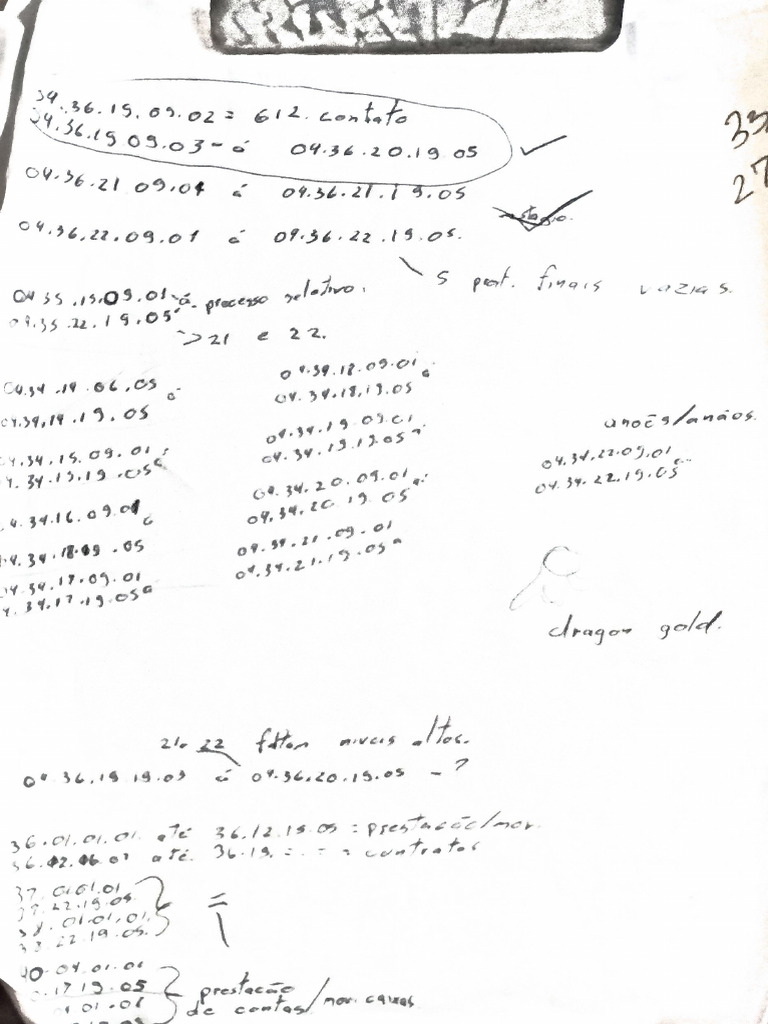 04.36.19.09.02 = 612. contato
04.36.19 09.03 - á 04.36.20.19 05
33
27
04.36.21 09.01 á 04.36.21.19.05
04.36.22.09.01 á 04.36.22.19.05.
5 prat. finais vazias.
04 35 .19.09.01 á processo seletivo.
04.35.22.19.05
>21 e 22.
04.34.14.06.05 á
04.34.14.19.05
04.34.18.09.01 á
04.34.18.19.05
04.34.15.09.01 á
4.34.15.19.05
04.34.19.09.01
04.34.19.19.05
4.34.16.09.01 á
04.34.20.09.01 á
04.34.20.19.05
04.34.22.09.01 á
04.34.22.19.05
4.34.18.19.05
04.34.17.09.01
4.34.17.19.05
04.34.21.09.01
04.34.21.19.05
dragon gold.
21. 22 faltam niveis altos.
04 36.19 19.03 á 04.36.20.19.05 - ?
36.01.01.01. até 36.12.19.05 = prestação/mov.
36.12.16.01 até 36.19. = - = contratos
37.01.01.01
37.22.19.05.
38.01.01.01.
38.22.19.05.
=
40.04.01.01
.17 19.05
01.01
prestação
de contas/mov. caixas